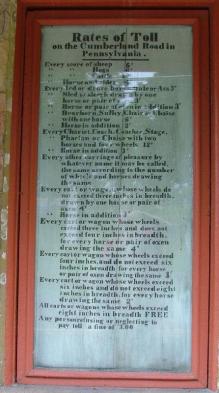 Rates of Toll
on the Cumberland Road in
Pennsylvania.
Every score of sheep 6¢
" " Hogs 6¢
" " Cattle
Horse and rider
Every led or drove horse, mule or Ass 3¢
" Sled or sleigh drawn by one
horse or pair of oxen
" Horse or pair of oxen in addition 3¢
" Dearborn, Sulky, Chair or Chaise
with one horse
" Horse in addition
Every Chariot, Coach, Coachee, Stage,
Phaeton or Chaise with two
horses and four wheels 12¢
" Horse in addition 3¢
Every other carriage of pleasure by
whatever name it may be called
the same according to the number
of wheels and horses drawing
the same
Every cart or wagon whose wheels do
not exceed three inches in breadth,
drawn by one horse or pair of
oxen 4¢
" Horse in addition
Every cart or wagon whose wheels
exceed three inches and does not
exceed four inches in breadth,
for every horse or pair of oxen
drawing the same 4¢
Every cart or wagon whose wheels exceed
four inches, and do not exceed six
inches in breadth for every horse
or pair of oxen drawing the same 3¢
Every cart or wagon whose wheels exceed
six inches and do not exceed eight
inches in breadth, for every horse
drawing the same 2
All carts or wagons whose wheels exceed
eight inches in breadth FREE
Any person refusing or neglecting to
pay toll a fine of 3.00